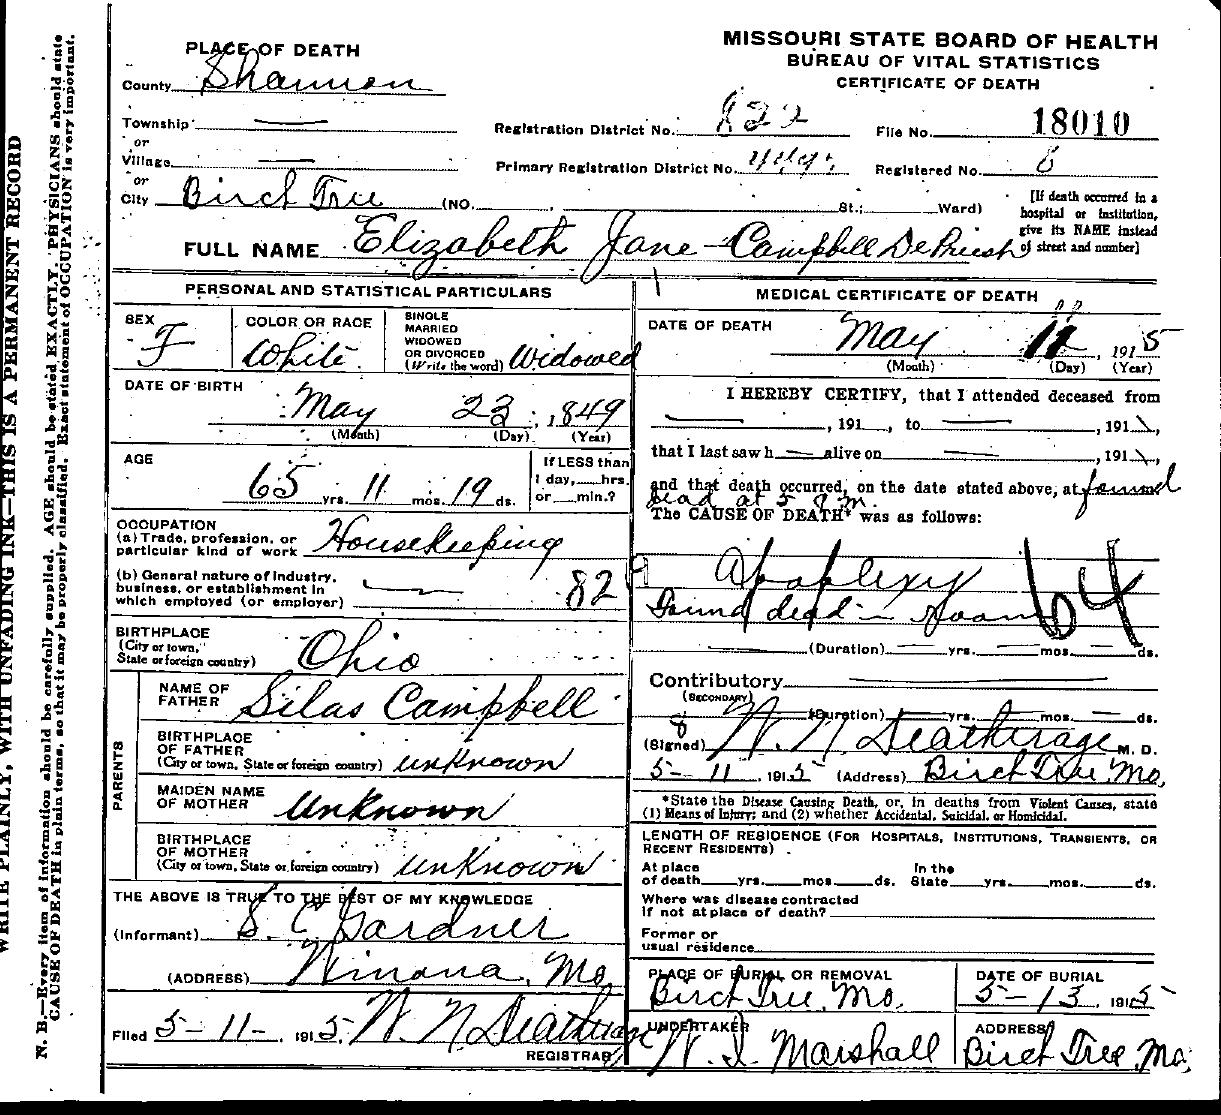 MISSOURI STATE BOARD OF HEALTH
BUREAU OF VITAL STATISTICS
CERTIFICATE OF DEATH
PLACE OF DEATH
County Shannon
Township
or
Village
or
City Birch Tree (NO. St.; Ward)
Registration District No. 822 File No. 18010
Primary Registration District No. Registered No. 8
[If death occurred in a
hospital or institution,
give its NAME instead
of street and number]
FULL NAME Elizabeth Jane Campbell DePriest
PERSONAL AND STATISTICAL PARTICULARS
SEX F
COLOR OR RACE White
SINGLE
MARRIED
WIDOWED
OR DIVORCED
(Write the word) Widowed
DATE OF BIRTH
May 23, 1849
(Month) (Day) (Year)
AGE
65 yrs. 11 mos. 19 ds.
If LESS than
1 day, hrs.
or min.?
OCCUPATION
(a) Trade, profession, or
particular kind of work Housekeeping
(b) General nature of industry,
business, or establishment in
which employed (or employer)
82
BIRTHPLACE
(City or town,
State or foreign country) Ohio
PARENTS
NAME OF
FATHER Silas Campbell
BIRTHPLACE
OF FATHER
(City or town, State or foreign country) unknown
MAIDEN NAME
OF MOTHER Unknown
BIRTHPLACE
OF MOTHER
(City or town, State or foreign country) unknown
THE ABOVE IS TRUE TO THE BEST OF MY KNOWLEDGE
(Informant) S. C. Gardner
(ADDRESS) Winona, Mo
Filed 5-11-, 1915. W. N. Deatherage
REGISTRAR
MEDICAL CERTIFICATE OF DEATH
DATE OF DEATH May 1915
(Month) (Day) (Year)
I HEREBY CERTIFY, that I attended deceased from
, 191 , to , 191 ,
that I last saw h alive on , 191 ,
and that death occurred, on the date stated above, at found
dead at 5 P.m.
The CAUSE OF DEATH* was as follows:
Apoplexy
Found dead in room
64
(Duration) yrs. mos. ds.
Contributory
(SECONDARY)
(Duration) yrs. mos. ds.
8
(Signed) W. N. Deatherage M. D.
5-11, 1915 (Address) Birch Tree, Mo.
*State the Disease Causing Death, or, in deaths from Violent Causes, state
(1) Means of Injury; and (2) whether Accidental, Suicidal, or Homicidal.
LENGTH OF RESIDENCE (FOR HOSPITALS, INSTITUTIONS, TRANSIENTS, OR
RECENT RESIDENTS)
At place In the
of death yrs. mos. ds. State yrs. mos. ds.
Where was disease contracted
if not at place of death?
Former or
usual residence
PLACE OF BURIAL OR REMOVAL
Birch Tree, Mo.
DATE OF BURIAL
5-13, 1915
UNDERTAKER
W. I. Marshall
ADDRESS
Birch Tree, Mo.
WRITE PLAINLY, WITH UNFADING INK—THIS IS A PERMANENT RECORD
N. B.—Every item of information should be carefully supplied. AGE should be stated EXACTLY. PHYSICIANS should state
CAUSE OF DEATH in plain terms, so that it may be properly classified. Exact statement of OCCUPATION is very important.